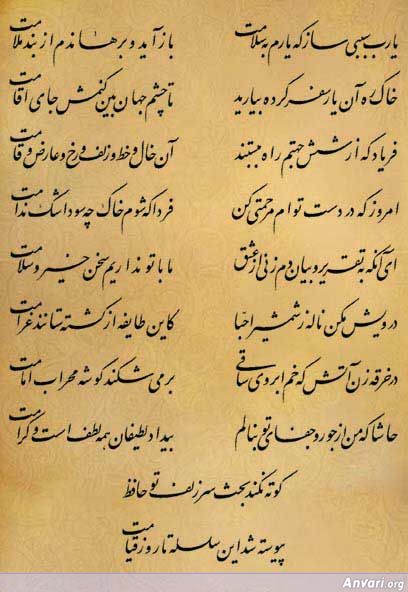 یارب سببی ساز که یارم به سلامت بازآید و برهاندم از بند ملامت
خاک ره آن یار سفر کرده بیارید تا چشم جهان بین کنمش جای اقامت
فریاد که از شش جهتم راه ببستند آن خال و خط و زلف و رخ و عارض و قامت
امروز که در دست توام مرحمتی کن فردا که شوم خاک چه سود اشک ندامت
ای آنکه به تقریر و بیان دم زنی از عشق ما با تو نداریم سخن خیر و سلامت
درویش مکن ناله ز شمشیر احبا کاین طایفه از کشته ستانند غرامت
در خرقه زن آتش که خم ابروی ساقی بر می شکند گوشه محراب امامت
حاشا که من از جور و جفای تو بنالم بیداد لطیفان همه لطف است و کرامت
کوته نکند بحث سر زلف تو حافظ
پیوسته شد این سلسله تا روز قیامت
Anvari.org